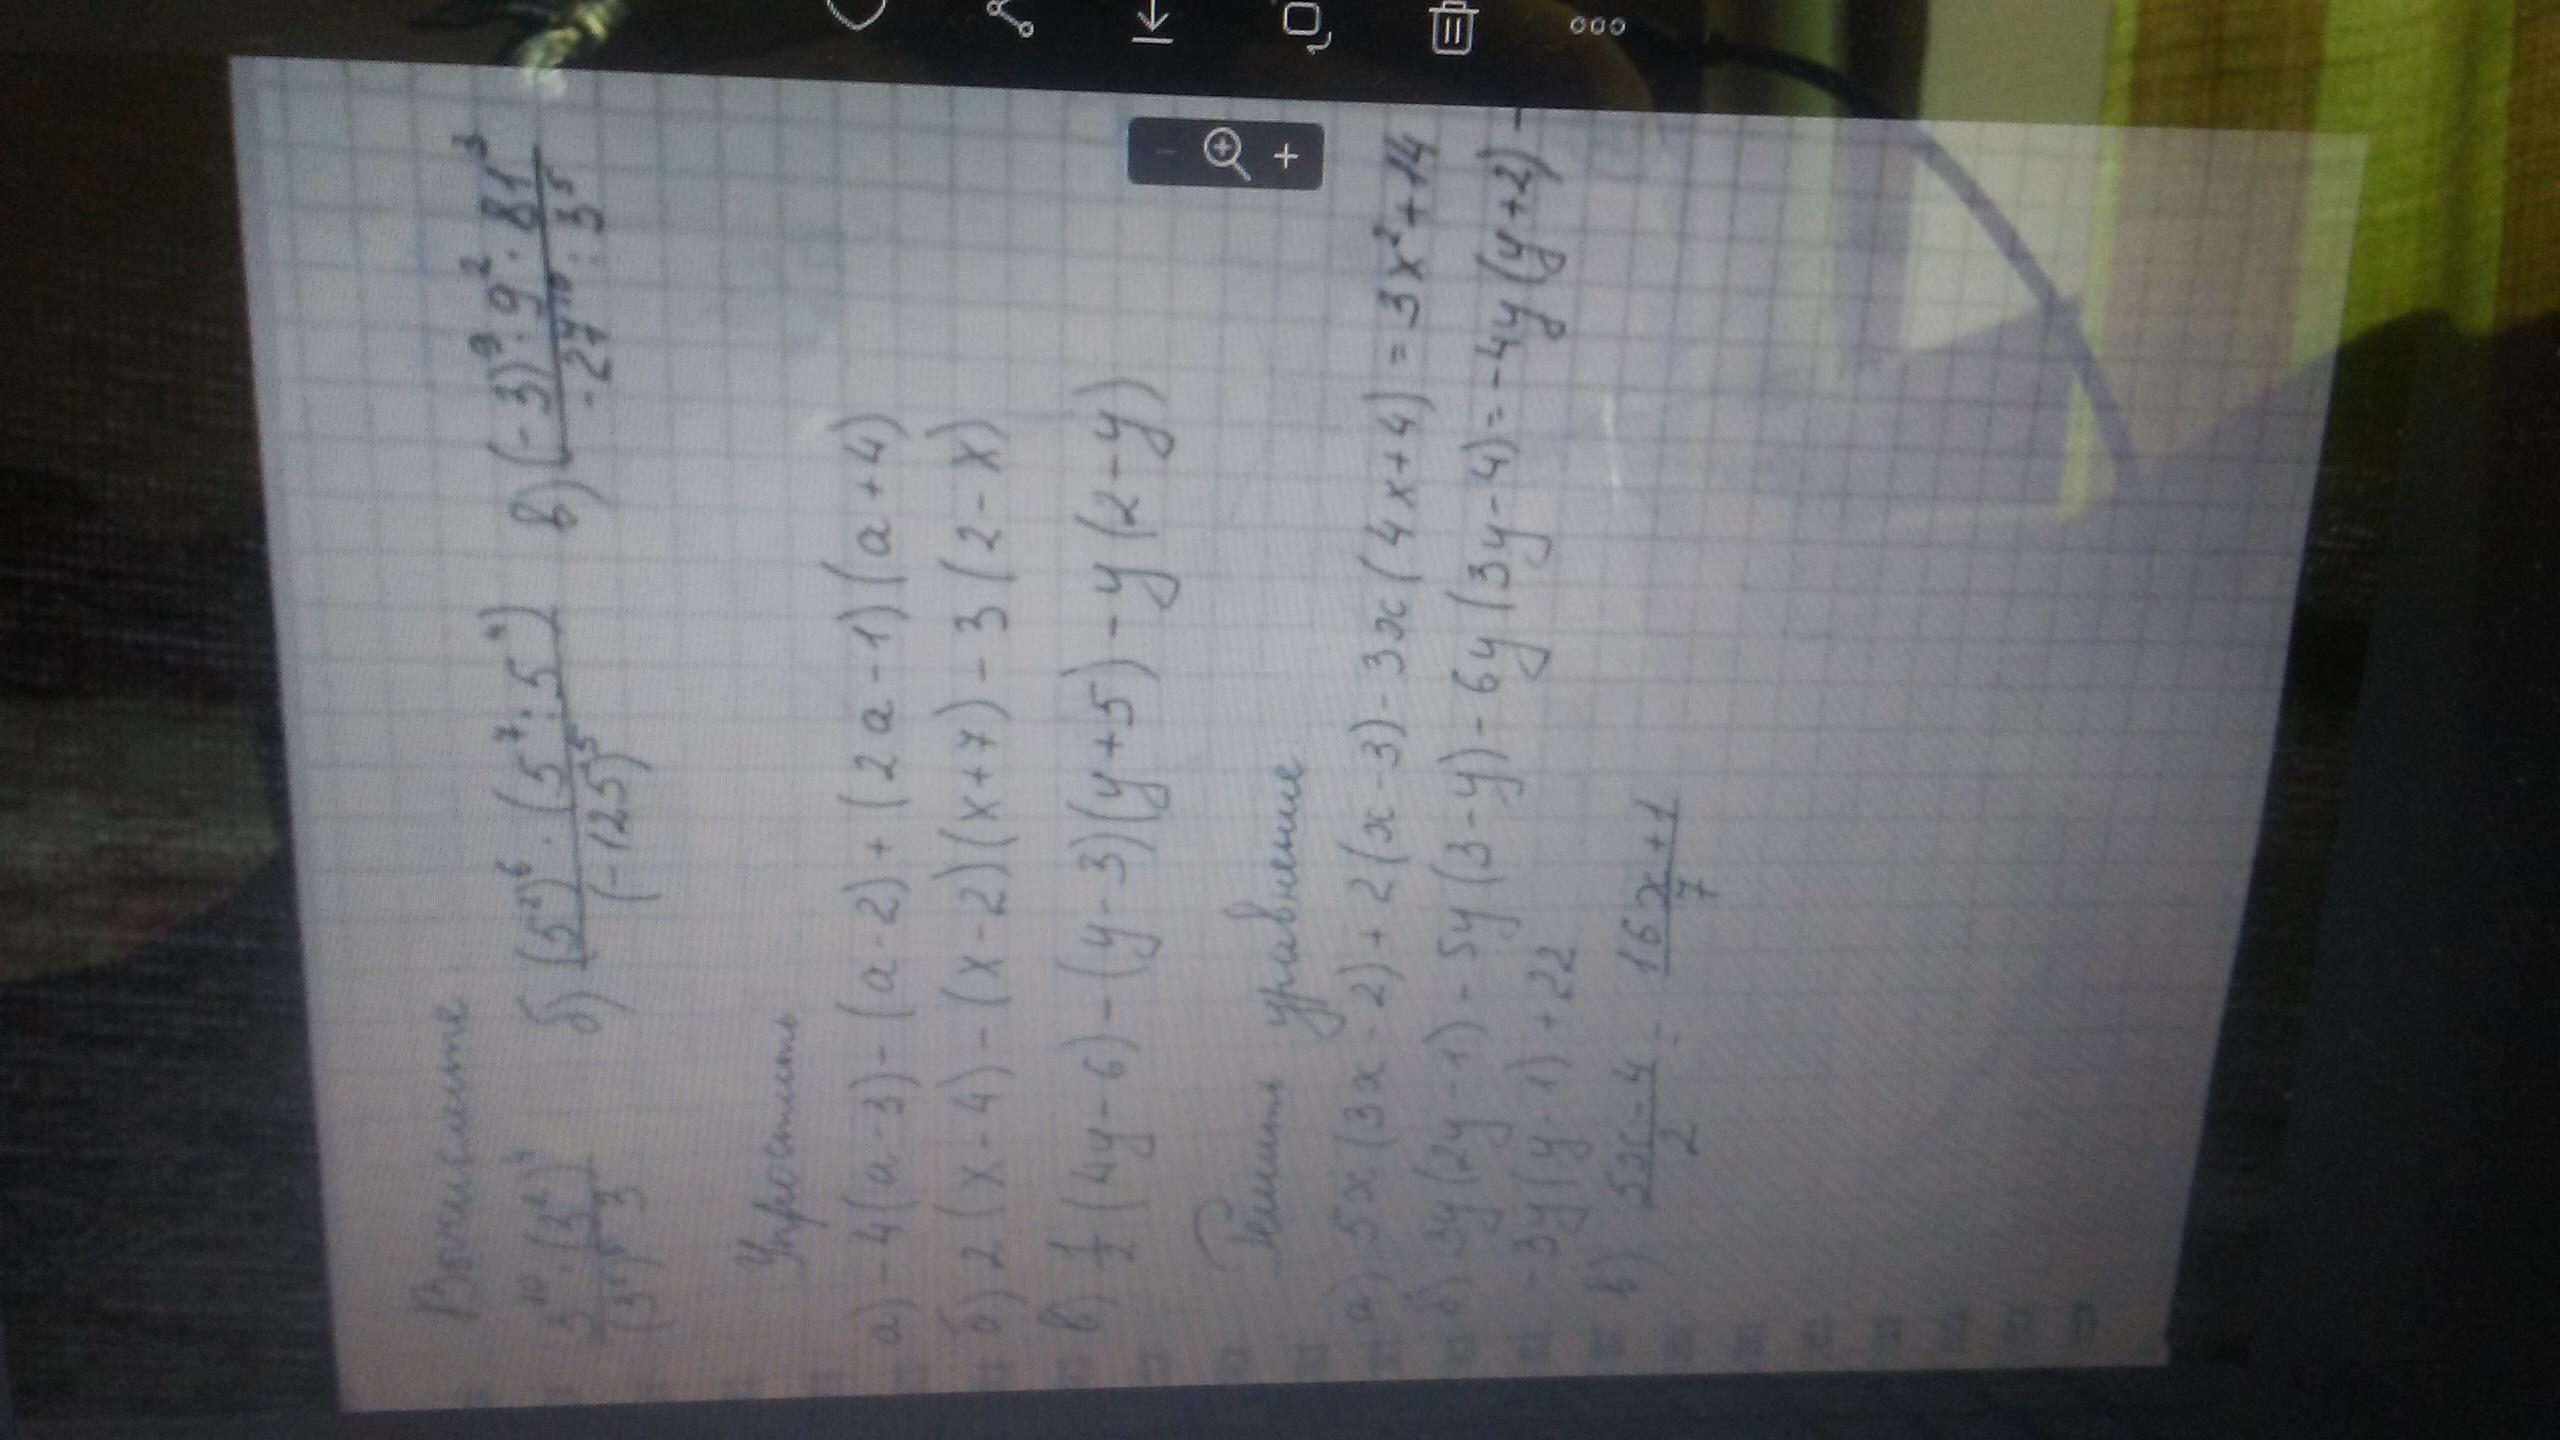 Вычислите
а) 3¹⁰·(3²)⁴ / (3⁵)·3 б) (5²)⁶·(5⁷:5⁴) / (-125)⁵ в) (-3)⁹·9²·81³ / -27¹⁰:3⁵
Упростить
а) -4(a-3)-(a-2)+(2a-1)(a+4)
б) 2(x-4)-(x-2)(x+7)-3(2-x)
в) 1/2(4y-6)-(y-3)(y+5)-y(2-y)
Решить уравнение
а) 5x(3x-2)+2(x-3)-3x(4x+4)=3x²+14
б) 3y(2y-1)-5y(3-y)-6y(3y-4)=-4y(y+2)-
-3y(y-1)+22
в) 5x-4 / 2 = 16x+1 / 7